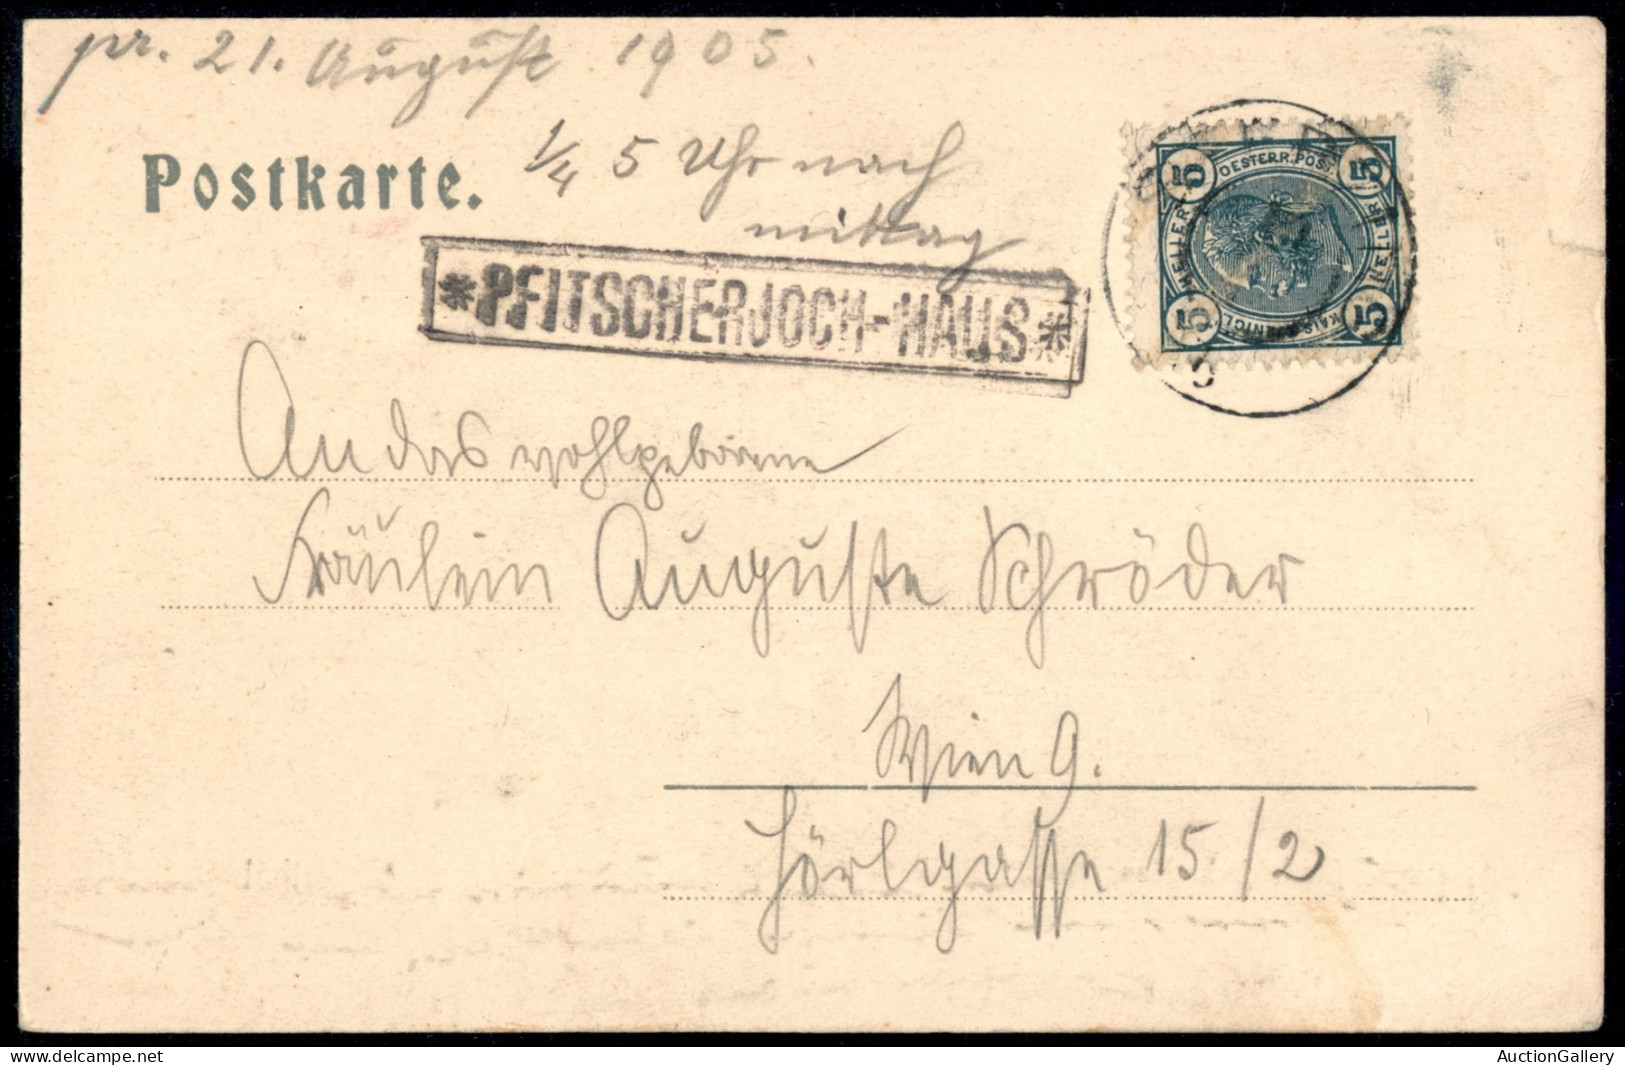 pr. 21. August 1905.
Postkarte.
1/4 5 Uhr nach
mittag
*PFITSCHERJOCH-HAUS*
5 OESTERR. POST. 5
HELLER HELLER
5 5
An das wohlgeborene
Fräulein Auguste Schröder
Wien 9.
Hörlgasse 15/2
AuctionGallery